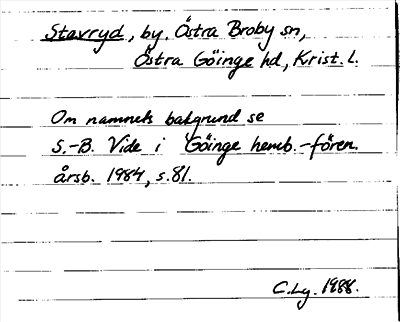 Stavryd, by, Östra Broby sn,
Östra Göinge hd, Krist. L.
Om namnets bakgrund se
S.-B. Vide i Göinge hemb.-fören.
årsb. 1984, s.81.
C.Ly. 1988.